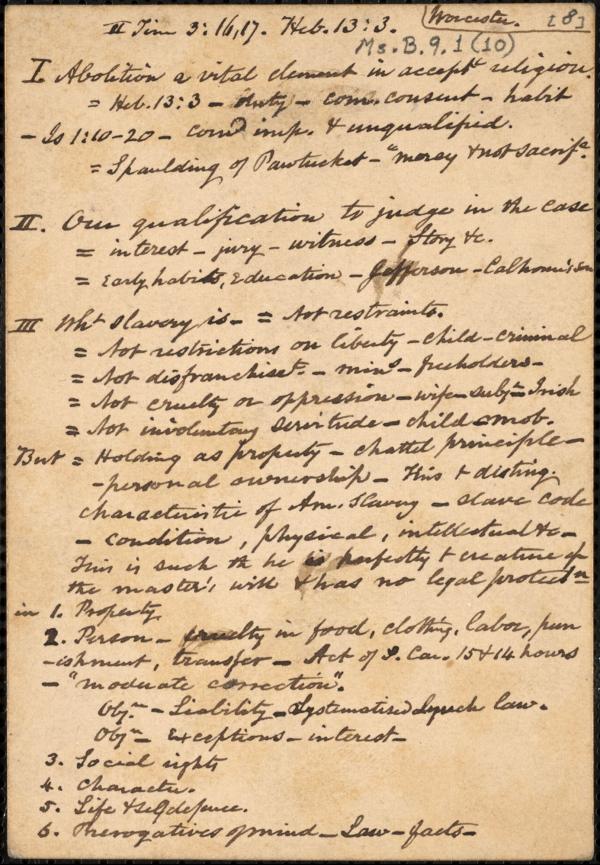 II Tim 3:16,17. Heb. 13:3. Worcester. [8]
Ms. B. 9. 1 (10)
I Abolition a vital element in acceptᵗ religion.
= Heb. 13:3 – duty – com. consent – habit
– Is 1:10–20 – comᵈ imp. & unqualified.
= Spaulding of Pawtucket – "mercy & not sacrifᵉ.
II. Our qualification to judge in the case
= interest – jury – witness – Story &c.
= Early habits, Education – Jefferson – Calhoun's son
III Whᵗ slavery is – = Not restraints.
= Not restrictions on liberty – child – criminal
= Not disfranchiseᵗ. – minˢ – freeholders –
= Not cruelty or oppression – wife – subjᵗˢ Irish
= Not involuntary servitude – child – mob.
But = Holding as property – chattel principle –
– personal ownership – This t disting.
characteristic of Am. Slavery – slave code
– condition, physical, intellectual &c –
This is such th he is perfectly t creature of
the master's will & has no legal protectⁿ
in 1. Property
2. Person – cruelty in food, clothg, labor, pun
-ishment, transfer – Act of S. Car. 15 & 14 hours
– "moderate correction".
Objⁿ – Liability – Systematised Lynch law.
Objⁿ – Exceptions – interest –
3. Social rights
4. Character.
5. Life & self defence.
6. Prerogatives of mind – Law – facts –